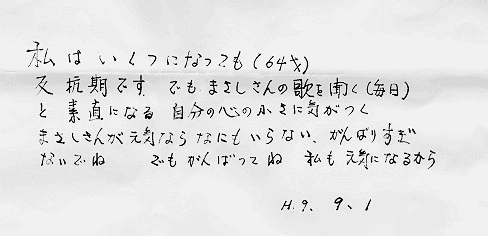 私はいくつになっても(64才)
反抗期です でもまさしさんの歌を聞く(毎日)
と 素直になる 自分の心の小さに気がつく
まさしさんが元気ならなにもいらない、がんばりすぎ
ないでね でもがんばってね 私も元気になるから
H.9、9、1